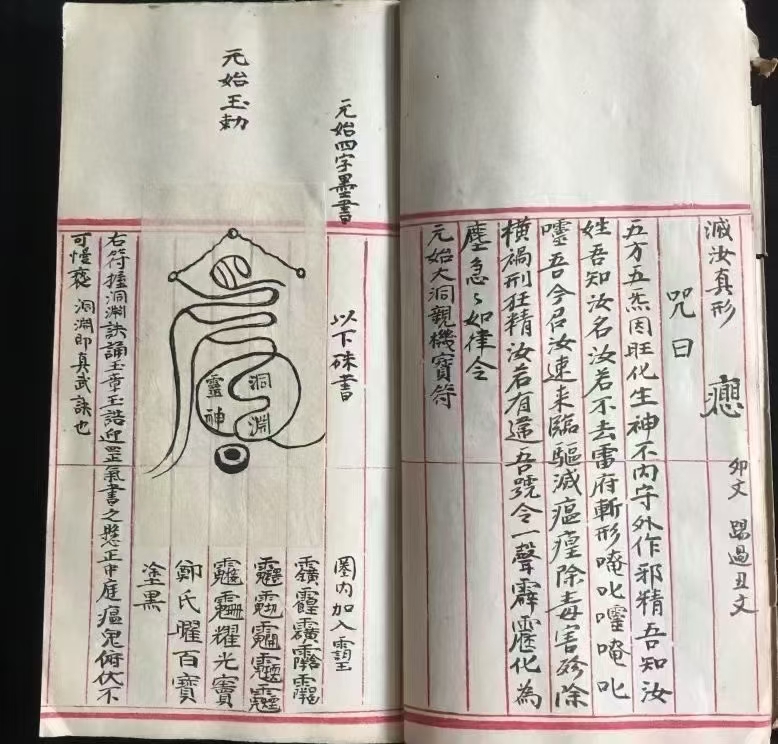 滅汝真形
卯文 踢過丑文
咒曰
五方五炁因旺化生神不內守外作邪精吾知汝
姓吾知汝名汝若不去雷府斬形唵叱𡃤唵叱
吾今召汝速来臨驅滅瘟㾮除毒害殄除
橫禍刑狂精汝若有違吾號令一聲霹靂化為
塵急々如律令
元始大洞觀機寶符
元始四字墨書
以下硃書
圈內加入
元始玉勅
洞淵
靈神
耀光
鄭氏曜百寶
塗黑
右符捶洞淵訣誦玉章玉誥迎罡氣書之懸正中庭瘟鬼俯伏不
可慢褻 洞淵即真武訣也